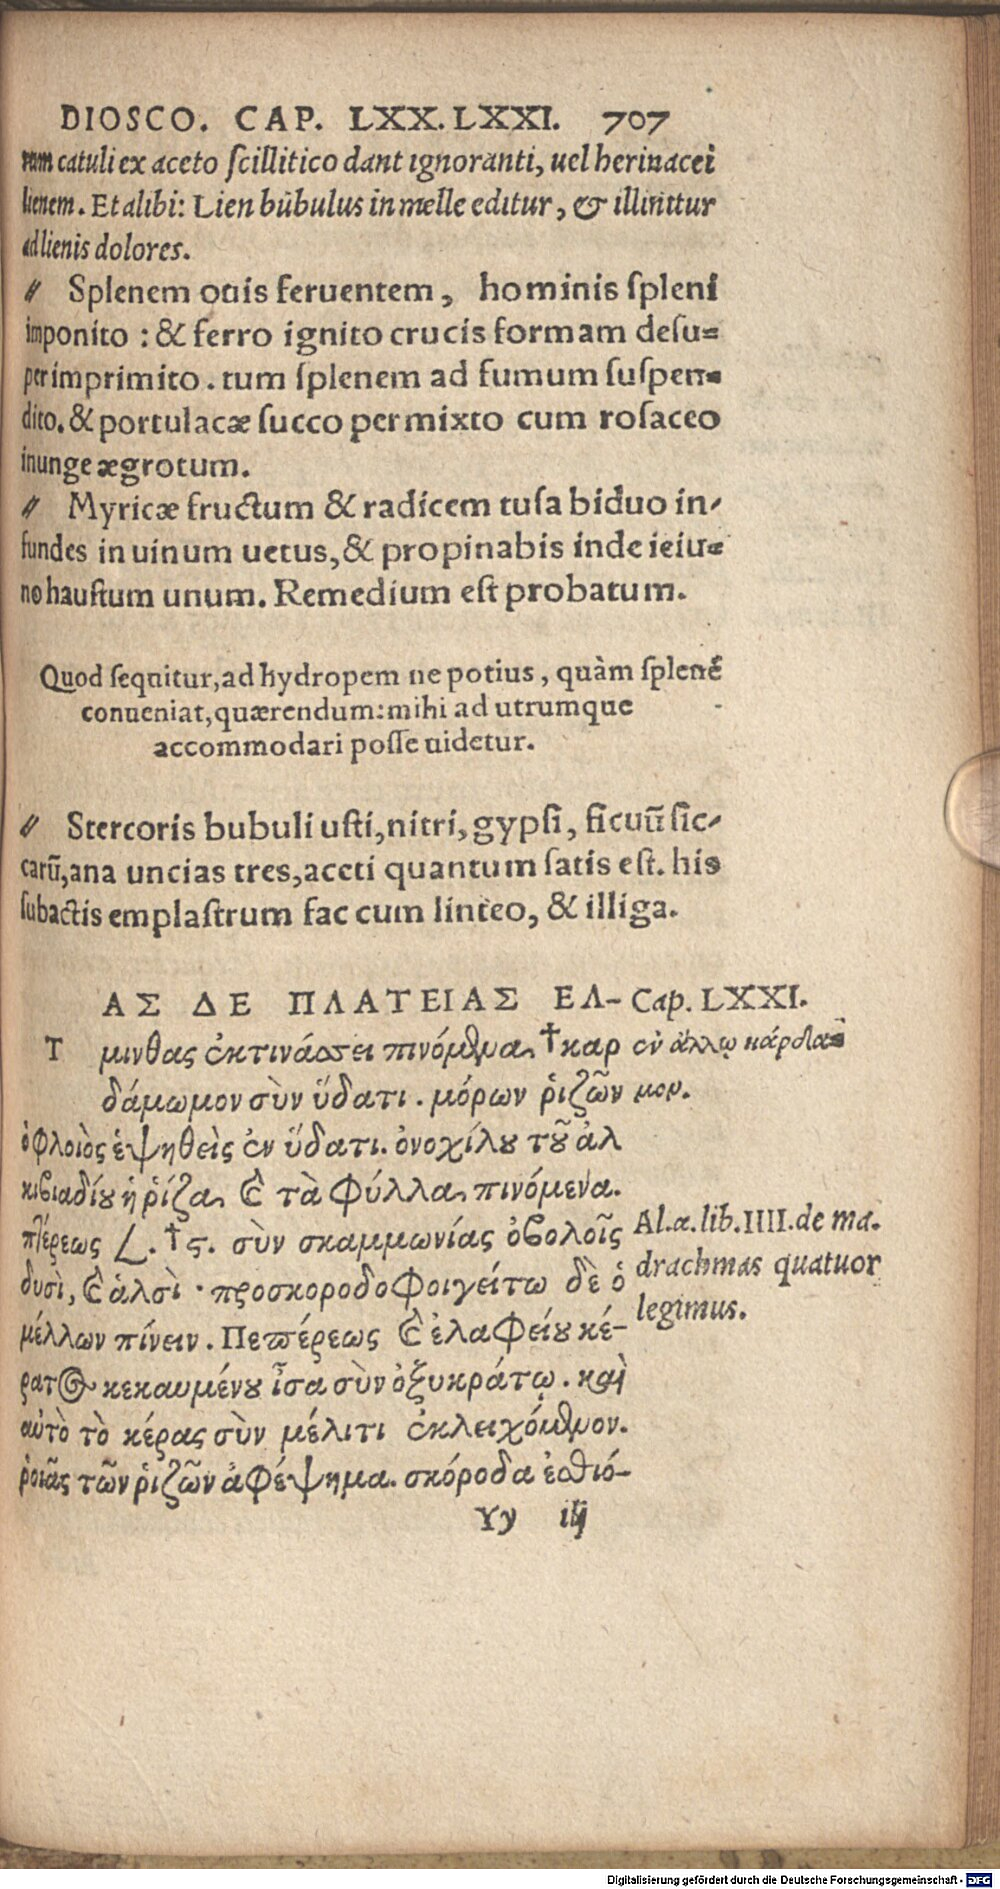 DIOSCO. CAP. LXX. LXXI. 707
rum catuli ex aceto ſcillitico dant ignoranti, uel herinacei
lienem. Et alibi: Lien bubulus in melle editur, & illinitur
ad lienis dolores.
〃 Splenem ouis feruentem, hominis ſpleni
imponito: & ferro ignito crucis formam deſu=
per imprimito. tum ſplenem ad fumum ſuſpen=
dito. & portulacæ ſucco permixto cum roſaceo
inunge ægrotum.
〃 Myricæ fructum & radicem tuſa biduo in-
fundes in uinum uetus, & propinabis inde ieiu=
no hauſtum unum. Remedium eſt probatum.
Quod ſequitur, ad hydropem ne potius, quàm ſplenē
conueniat, quærendum: mihi ad utrumque
accommodari poſſe uidetur.
〃 Stercoris bubuli uſti, nitri, gypſi, ficuū ſic-
carū, ana uncias tres, aceti quantum ſatis eſt. his
ſubactis emplaſtrum fac cum linteo, & illiga.
ΑΣ ΔΕ ΠΛΑΤΕΙΑΣ ΕΛ- Cap. LXXI.
Τ μινθας ἐκτινάσσει πινόμενα. † καρ ἐν ἄλλῳ κάρδα
δάμωμον σὺν ὕδατι. μόρων ῥιζῶν μον.
ὁ φλοιὸς ἑψηθεὶς ἐν ὕδατι. ὀνοχίλου τοῦ ἀλ
κιβιαδίου ἡ ῥίζα, καὶ τὰ φύλλα πινόμενα.
πτέρεως 𐅻. † ς. σὺν σκαμμωνίας ὀβολοῖς Al. a. lib. IIII. de ma.
δυσὶ, καὶ ἁλσὶ· προσκοροδοφαγείτω δὲ ὁ drachmas quatuor
μέλλων πίνειν. Πεπέρεως καὶ ἐλαφείου κέ- legimus.
ρατος κεκαυμένου ἶσα σὺν ὀξυκράτῳ. καὶ
αὐτὸ τὸ κέρας σὺν μέλιτι ἐκλειχόμενον.
ῥοιᾶς τῶν ῥιζῶν ἀφέψημα. σκόροδα ἐσθιό-
Yy iij
Digitalisierung gefördert durch die Deutsche Forschungsgemeinschaft - DFG